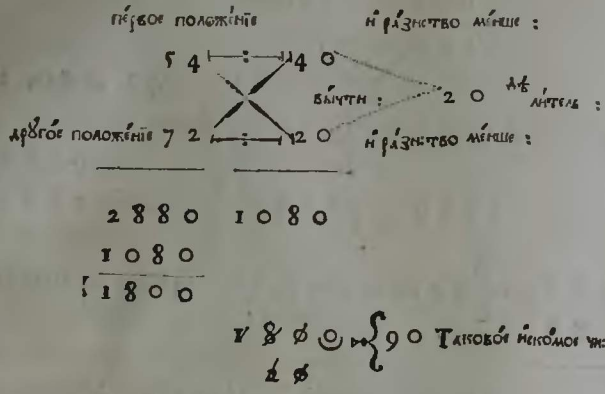 пе́рвое положе́нїе и҆ ра́знство ме́нше :
5 4 : 4 0
вы́чти : 2 0 дѣ
ли́тель :
дрꙋго́е положе́нїе 7 2 : 2 0 и҆ ра́знство ме́нше :
2 8 8 0 1 0 8 0
1 0 8 0
1 8 0 0
1 8 0 0 { 9 0 Таково́е и҆ско́мое чи:
2 0